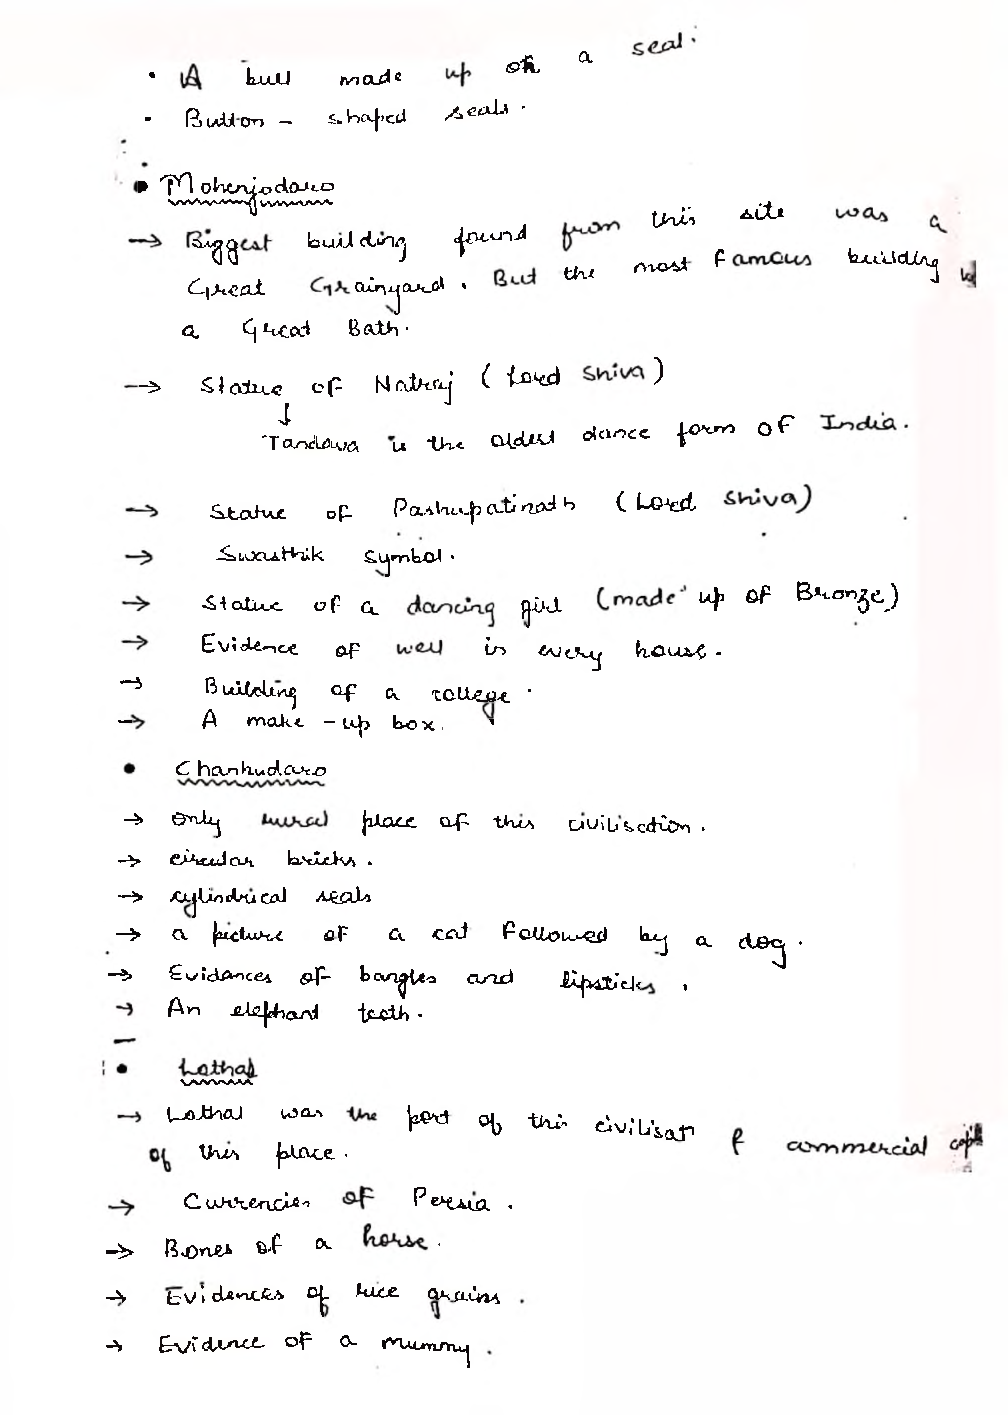 • A bull made up on a seal.
• Button - shaped seals.
• Mohenjodaro
→ Biggest building found from this site was a
Great Grainyard. But the most famous building is
a Great Bath.
→ Statue of Natraj (Lord Shiva)
↓
Tandava is the oldest dance form of India.
→ Statue of Pashupatinath (Lord Shiva)
→ Swasthik symbol.
→ Statue of a dancing girl (made up of Bronze)
→ Evidence of well in every house.
→ Building of a college.
→ A make-up box.
• Chanhudaro
→ only rural place of this civilisation.
→ circular bricks.
→ cylindrical seals
→ a picture of a cat followed by a dog.
→ Evidances of bangles and lipsticks.
→ An elephant teeth.
• Lothal
→ Lothal was the port of this civilisat commercial
of this place.
→ Currencies of Persia.
→ Bones of a horse.
→ Evidences of rice grains.
→ Evidence of a mummy.